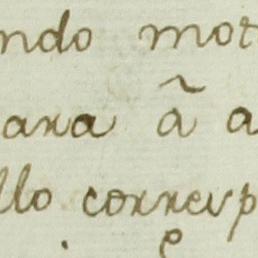 ndo mot
ara ã a
llo corresp